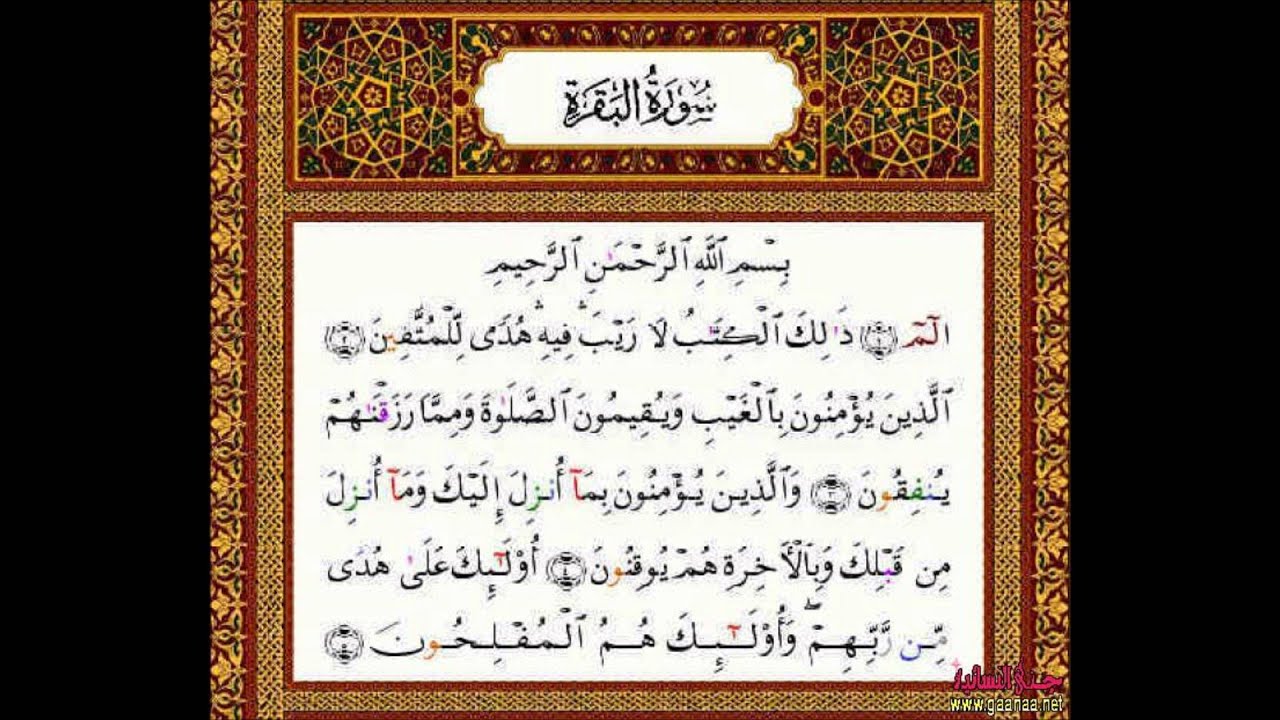 سُورَةُ الْبَقَرَةِ
بِسْمِ ٱللَّهِ ٱلرَّحْمَـٰنِ ٱلرَّحِيمِ
الٓمٓ ١ ذَٰلِكَ ٱلْكِتَـٰبُ لَا رَيْبَ ۛ فِيهِ ۛ هُدًى لِّلْمُتَّقِينَ ٢
ٱلَّذِينَ يُؤْمِنُونَ بِٱلْغَيْبِ وَيُقِيمُونَ ٱلصَّلَوٰةَ وَمِمَّا رَزَقْنَـٰهُمْ
يُنفِقُونَ ٣ وَٱلَّذِينَ يُؤْمِنُونَ بِمَآ أُنزِلَ إِلَيْكَ وَمَآ أُنزِلَ
مِن قَبْلِكَ وَبِٱلْأَخِرَةِ هُمْ يُوقِنُونَ ٤ أُو۟لَـٰٓئِكَ عَلَىٰ هُدًى
مِّن رَّبِّهِمْ ۖ وَأُو۟لَـٰٓئِكَ هُمُ ٱلْمُفْلِحُونَ ٥
www.gaanaa.net